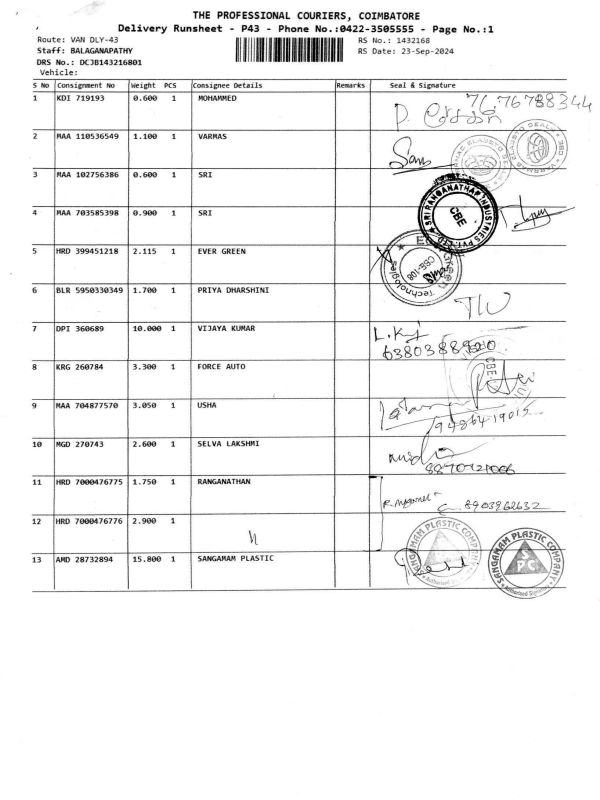 THE PROFESSIONAL COURIERS, COIMBATORE
Delivery Runsheet - P43 - Phone No.:0422-3505555 - Page No.:1
Route: VAN DLY-43 RS No.: 1432168
Staff: BALAGANAPATHY RS Date: 23-Sep-2024
DRS No.: DCJB143216801
Vehicle:
S No Consignment No Weight PCS Consignee Details Remarks Seal & Signature
1 KDI 719193 0.600 1 MOHAMMED 76.76788344
2 MAA 110536549 1.100 1 VARMAS
3 MAA 102756386 0.600 1 SRI
SRI RANGANATHAR INDUSTRIES PVT. LTD. CBE
4 MAA 703585398 0.900 1 SRI
5 HRD 399451218 2.115 1 EVER GREEN
Technologies CBE-108
6 BLR 5950330349 1.700 1 PRIYA DHARSHINI
7 DPI 360689 10.000 1 VIJAYA KUMAR
6380388920
8 KRG 260784 3.300 1 FORCE AUTO
CBE
9 MAA 704877570 3.050 1 USHA
9486419015
10 MGD 270743 2.600 1 SELVA LAKSHMI
11 HRD 7000476775 1.750 1 RANGANATHAN
8903962632
12 HRD 7000476776 2.900 1 
13 AMD 28732894 15.800 1 SANGAMAM PLASTIC
SANGAMAM PLASTIC COMPANY Authorised Signatory
SANGAMAM PLASTIC COMPANY SPC Authorised Signatory